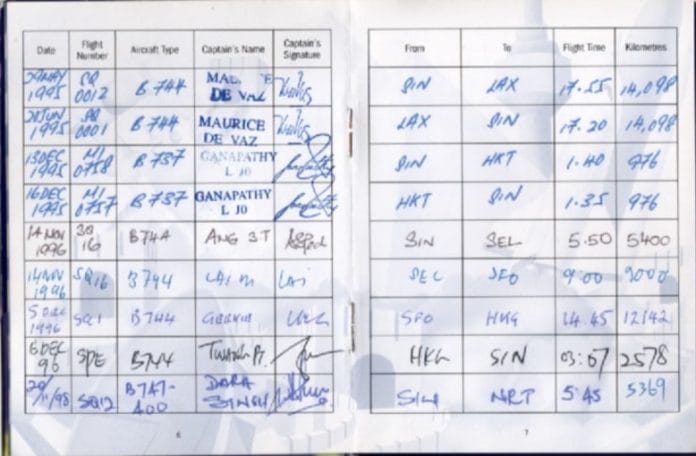 Date Flight Number Aircraft Type Captain's Name Captain's Signature From To Flight Time Kilometres
29 MAY 1995 SQ 0012 B 744 DE VAZ SIN LAX 17.55 14,098
1995 SQ 0001 B 744 MAURICE DE VAZ LAX SIN 17.20 14,098
13 DEC 1995 MI 0758 B 737 GANAPATHY L JO SIN HKT 1.40 976
16 DEC 1995 MI 0757 B 737 GANAPATHY L JO HKT SIN 1.35 976
14 NOV 1996 SQ 16 B744 ANG ST SIN SEL 5.50 5400
14 NOV 1996 SQ16 B744 LAI M SEL SFO 9.00 9000
5 DEC 1996 SQ1 B744 SFO HKG 14.45 12142
6 DEC 96 B744 HKG SIN 03:07 2578
20/11/98 SQ12 B747-400 DARA SINGH SIN NRT 5.45 5369
6 7